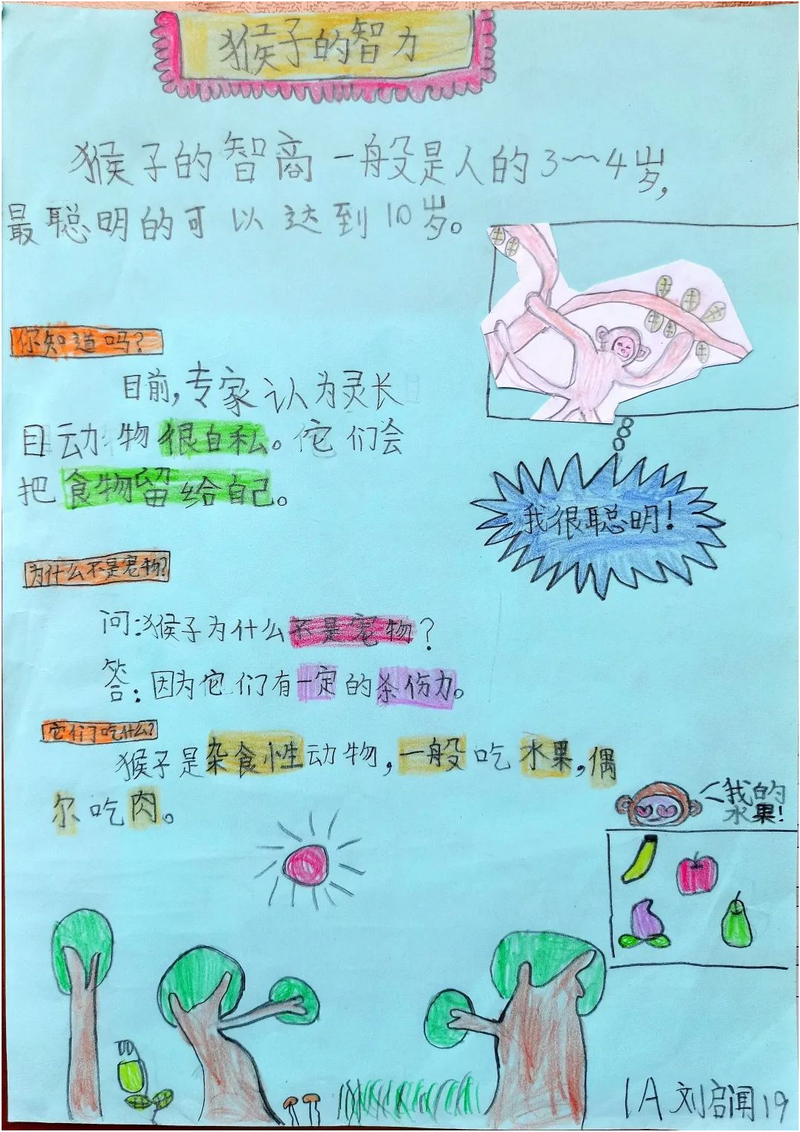 猴子的智力
猴子的智商一般是人的3~4岁,
最聪明的可以达到10岁。
你知道吗?
目前,专家认为灵长
目动物很自私。它们会
把食物留给自己。
我很聪明!
为什么不是宠物?
问:猴子为什么不是宠物?
答:因为它们有一定的杀伤力。
它们吃什么?
猴子是杂食性动物,一般吃水果,偶
尔吃肉。
我的
水果!
1A 刘启闻 19